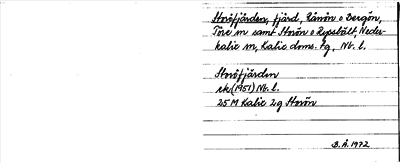 Storöfjärden, fjärd, Rånön o Bergön,
Töre sn samt Storön o Rypsbält, Neder-
kalix sn, Kalix doms. 2g, Nb. l.
Storöfjärden
ek. (1951) Nb. l.
25 M Kalix 2g Storön
B. Å. 1972